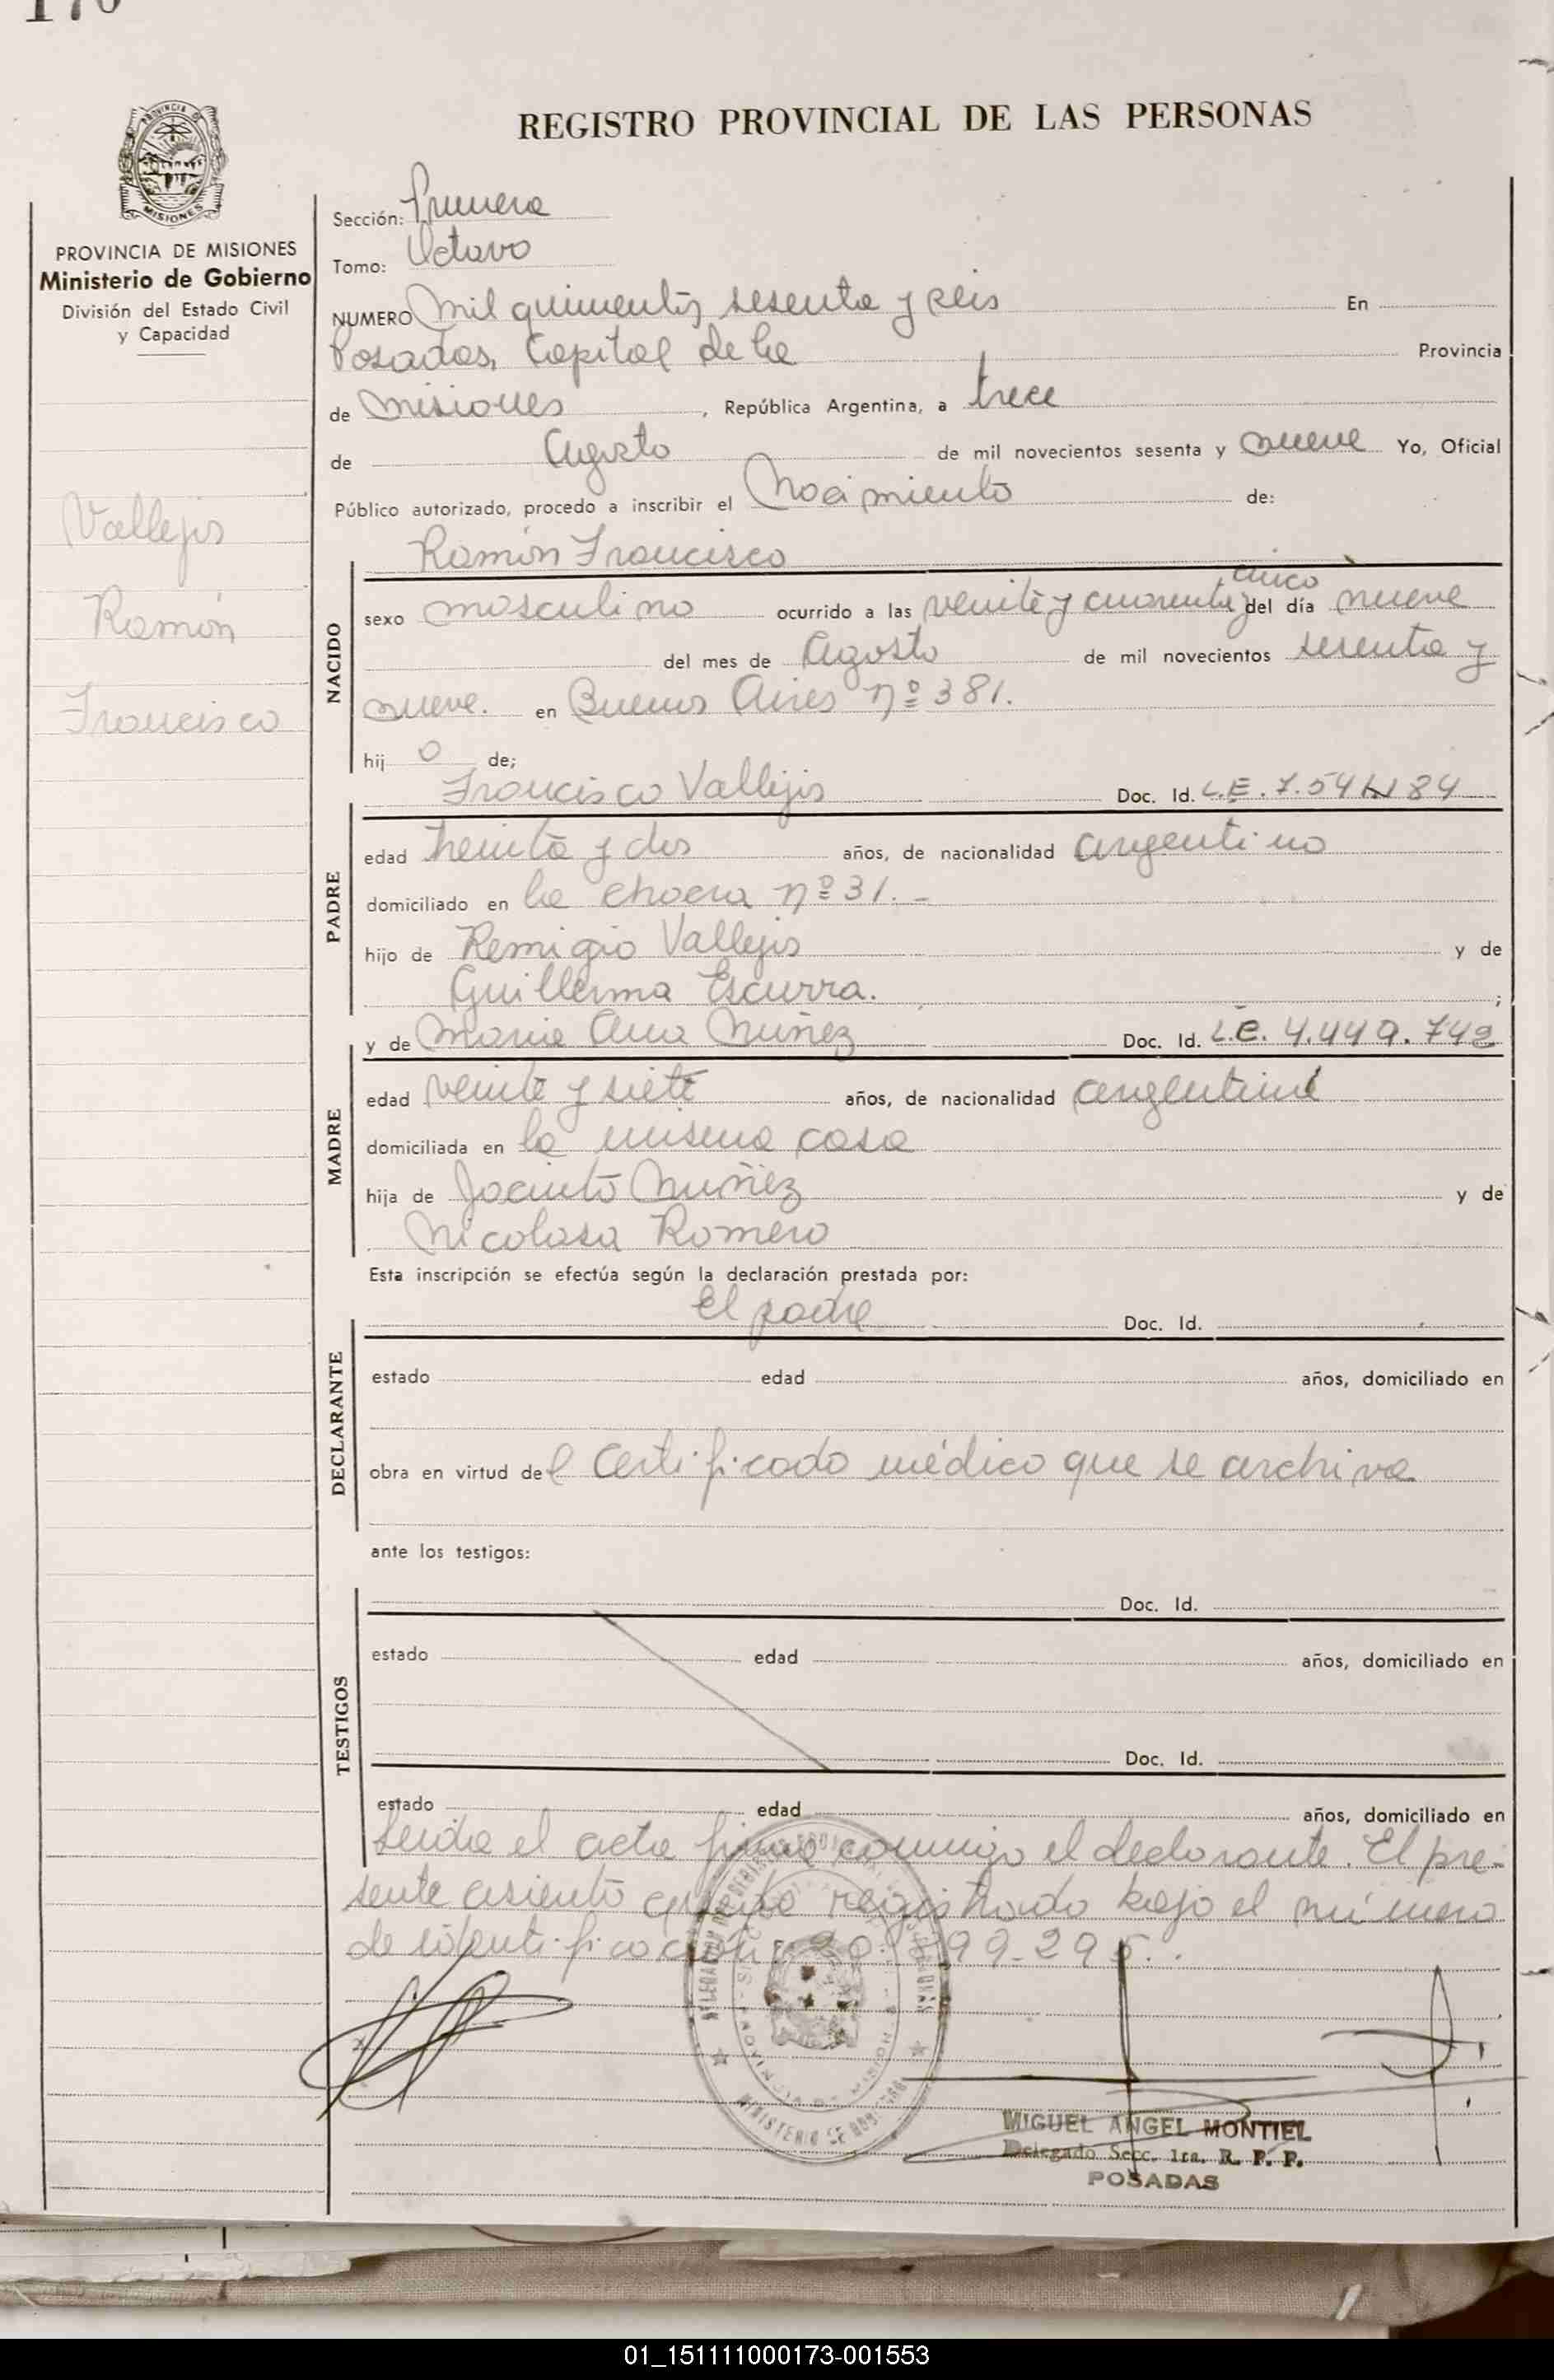 170
REGISTRO PROVINCIAL DE LAS PERSONAS
MISIONES
PROVINCIA DE MISIONES
Ministerio de Gobierno
División del Estado Civil
y Capacidad
Vallejos
Ramón
Francisco
Sección: Primera
Tomo: Octavo
NUMERO Mil quinientos sesenta y seis En
Posadas, Capital de la Provincia
de Misiones, República Argentina, a trece
de Agosto de mil novecientos sesenta y nueve Yo, Oficial
Público autorizado, procedo a inscribir el Nacimiento de:
NACIDO
Ramón Francisco
cinco
sexo masculino ocurrido a las veinte y cuarenta y del día nueve
del mes de Agosto de mil novecientos sesenta y
nueve. en Buenos Aires nº 381.
hij o de;
PADRE
Francisco Vallejos Doc. Id. L.E. 7.541.184
edad treinta y dos años, de nacionalidad argentino
domiciliado en la chacra nº 31.-
hijo de Remigio Vallejos y de
Guillerma Escurra. ;
MADRE
y de Maria Ana Nuñez Doc. Id. L.E. 4.449.742
edad veinte y siete años, de nacionalidad argentina
domiciliada en la misma casa
hija de Jacinto Nuñez y de
Nicolasa Romero
Esta inscripción se efectúa según la declaración prestada por:
DECLARANTE
El padre Doc. Id.
estado edad años, domiciliado en
obra en virtud del Certificado médico que se archiva
ante los testigos:
TESTIGOS
Doc. Id.
estado edad años, domiciliado en
Doc. Id.
estado edad años, domiciliado en
Leida el acta firma conmigo el declarante. El pre-
sente asiento queda registrado bajo el número
de identificación: 20. 99-295.
MIGUEL ANGEL MONTIEL
Delegado Secc. 1ra. R. P. P.
POSADAS
01_151111000173-001553